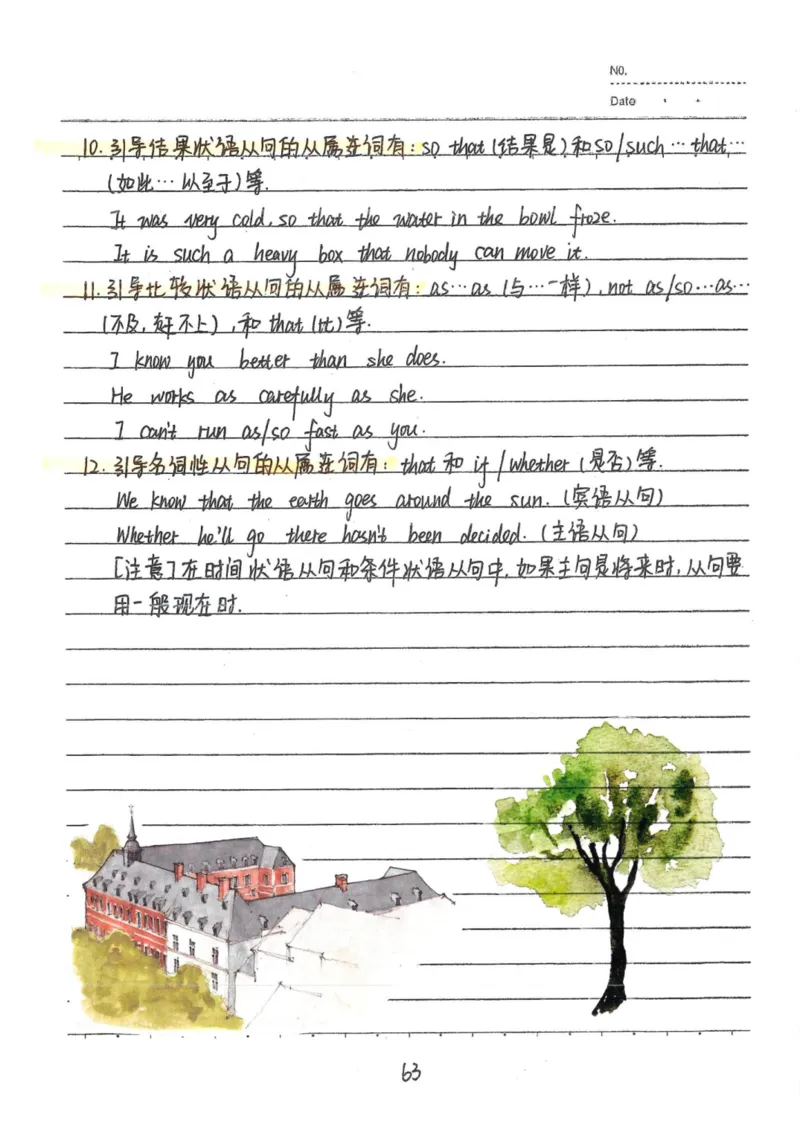 NO.
Date
10.引导结果状语从句的从属连词有：so that (结果是)和so/such…that…
(如此…以至于)等.
It was very cold, so that the water in the bowl froze.
It is such a heavy box that nobody can move it.
11.引导比较状语从句的从属连词有：as…as (与…一样),not as/so…as…
(不及,好不上),和than (比)等.
I know you better than she does.
He works as carefully as she.
I can't run as/so fast as you.
12.引导名词性从句的从属连词有：that和if/whether (是否)等.
We know that the earth goes around the sun. (宾语从句)
Whether he'll go there hasn't been decided. (主语从句)
[注意]在时间状语从句和条件状语从句中,如果主句是将来时,从句要
用一般现在时.
63